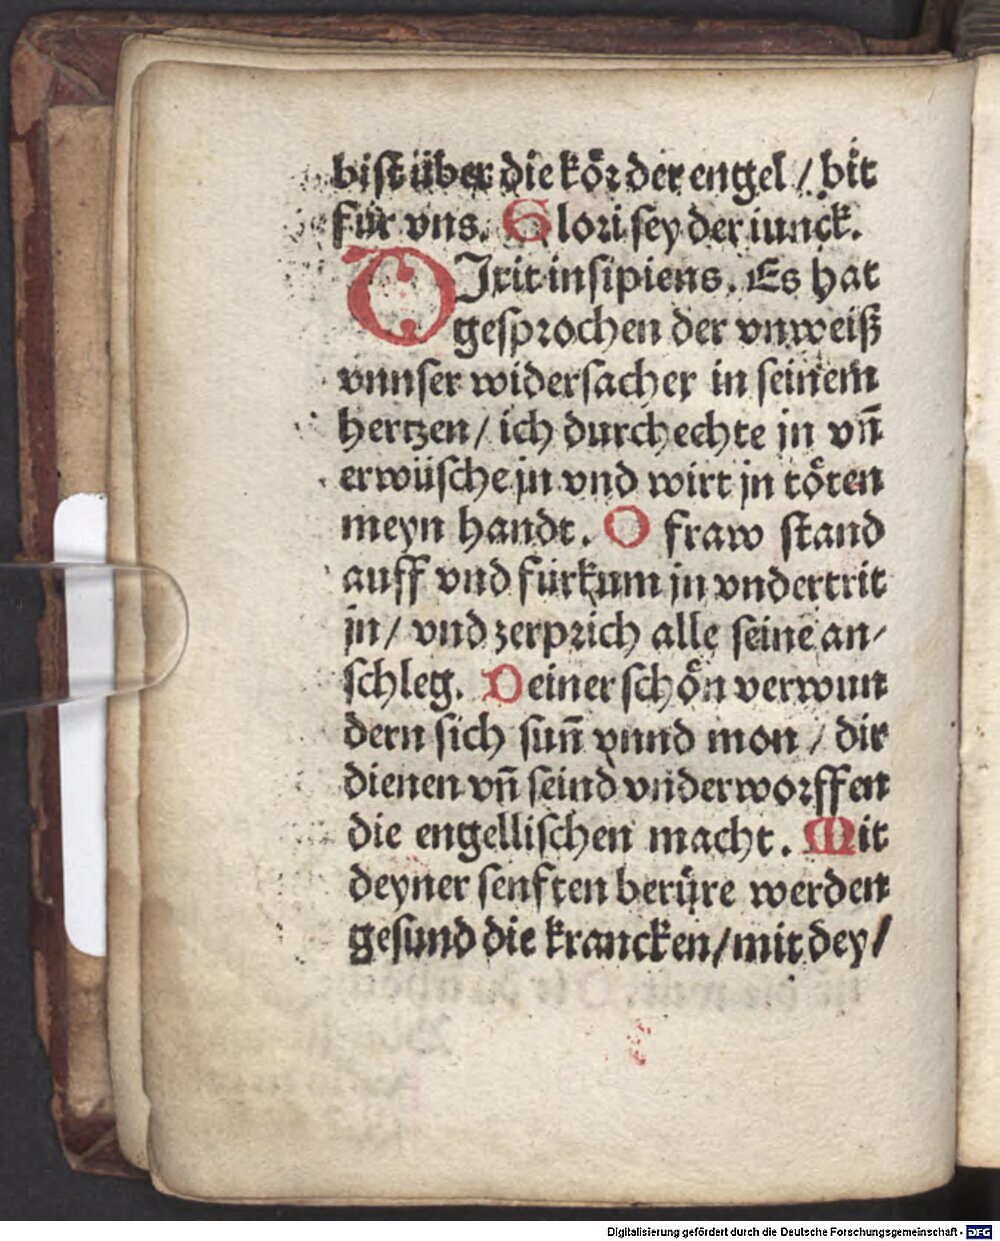 bist über die kör der engel / bit
für vns. Glori sey der iunck.
DIxit insipiens. Es hat
gesprochen der vnweiß
vnnser widersacher in seinem
hertzen / ich durchechte in vn̄
erwüsche in vnd wirt in töten
meyn handt. O fraw stand
auff vnd fürkum in vndertrit
in / vnd zerprich alle seine an-
schleg. Deiner schön verwun
dern sich sun̄ vnnd mon / dir
dienen vn̄ seind vnderworffen
die engellischen macht. Mit
deyner senften berüre werden
gesund die krancken / mit dey /
Digitalisierung gefördert durch die Deutsche Forschungsgemeinschaft - DFG